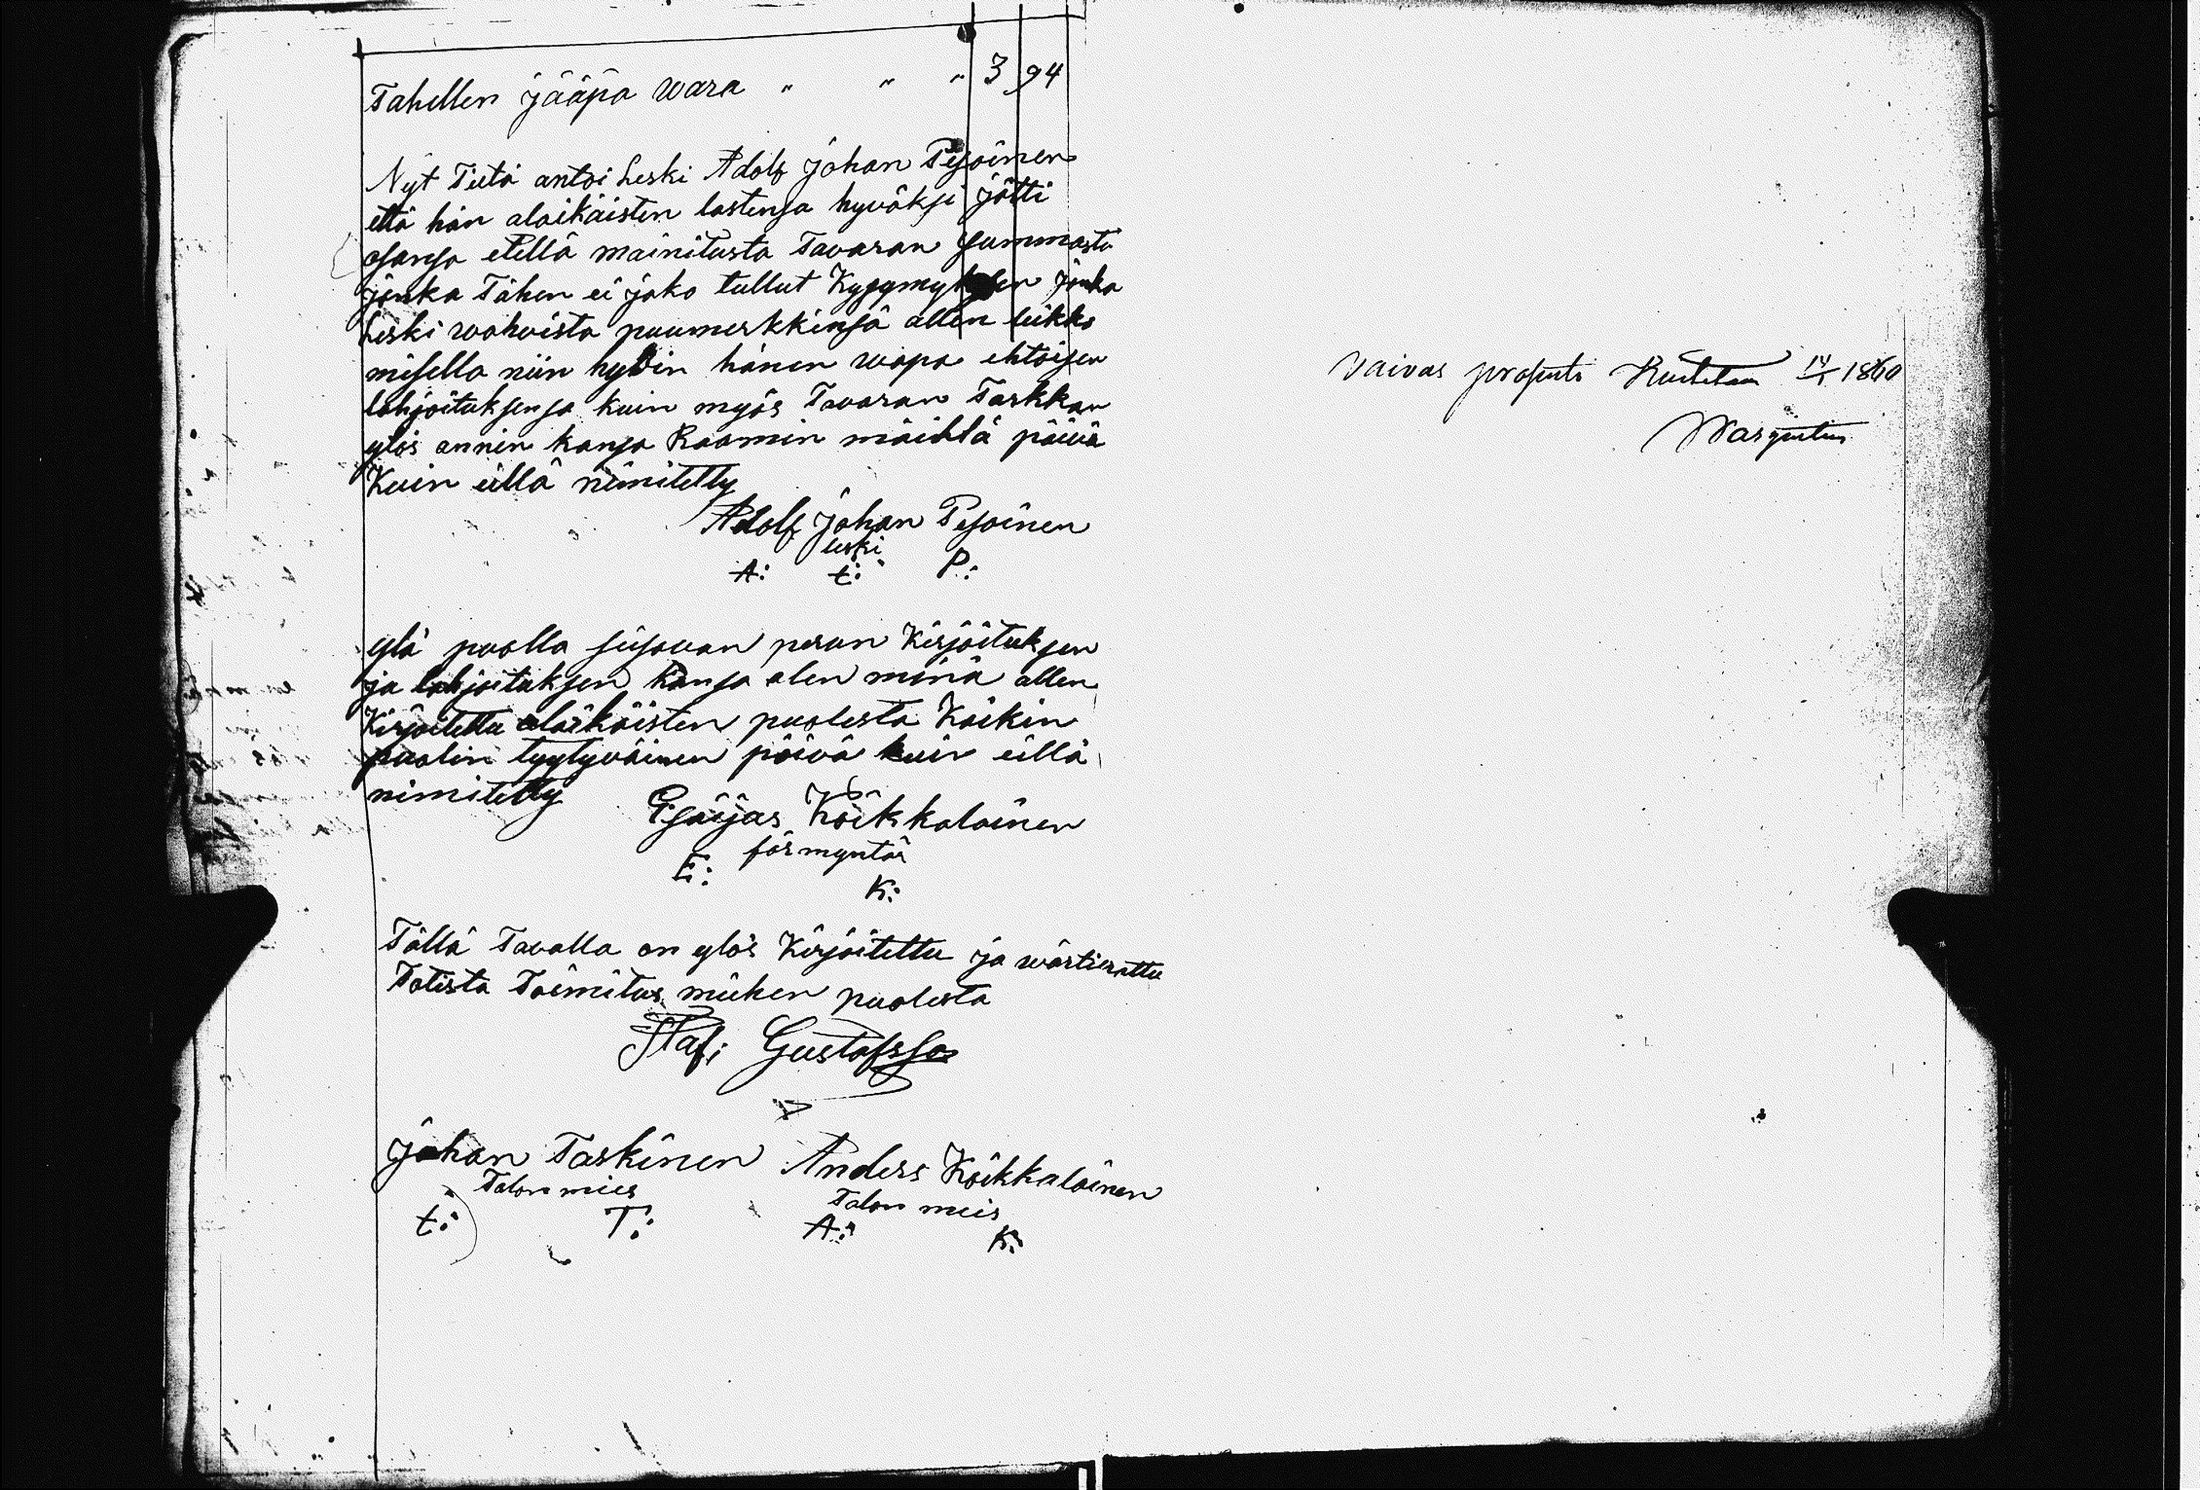 Tahellen jääpä wara " " " 3 94
Nyt Tietä antoi Leski Adolf Johan Pesoinen
että hän alaikäisten lastensa hyväksi jätti
osansa etellä mainitusta Tavaran summasta
jonka Tähen ei jako tullut Kysymyksen jonka
Leski wahvista puumerkkinsä allen leikko
misella niin hyvin hänen wapa ehtoisen
lahjoituksensa kuin myös Tavaran Tarkkan
ylös annin kansa Raamin mäeltä päivä
Kuin eillä nimitetty
Adolf Johan Pesoinen
leski
A: t: P:
ylä puolla seisovan perun Kirjoituksen
ja lahjoituksen kansa olen minä allen
Kirjoitettu alaikäisten puolesta Kaikin
puolin tyytyväinen päivä kuin eillä
nimitetty
Esaijas Köikkaläinen
förmyntär
E: K:
Tällä Tavalla on ylös Kirjoitettu ja wärtierattu
Totista Toimitus miehen puolesta
Staf: Gustafsson
Johan Taskinen Anders Köikkaläinen
Talon mies Talon mies
t: T: A: K:
Vaivas prosentti 14/1 1860